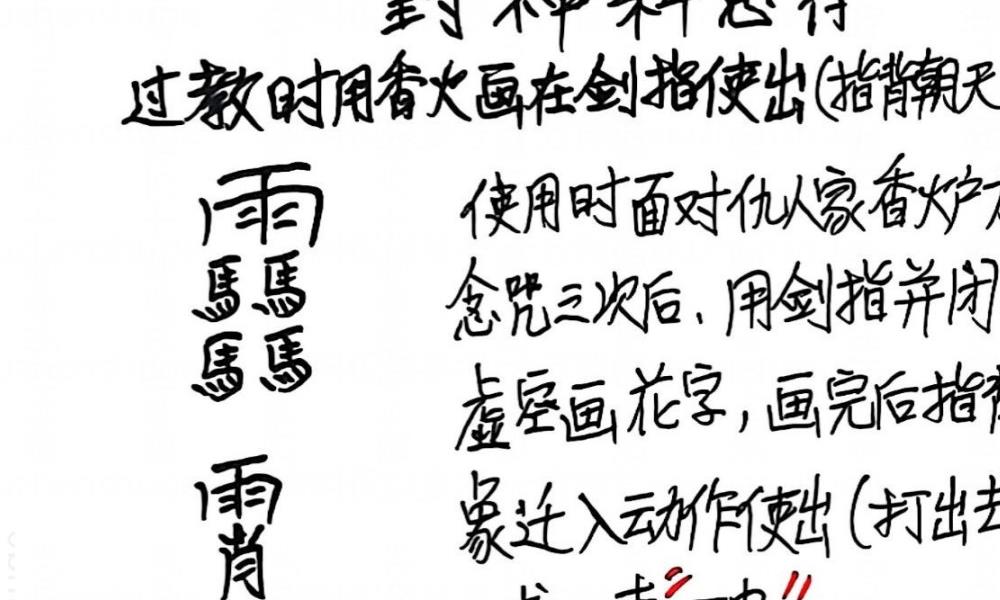 过教时用香火画在剑指使出(指背朝天
雨 使用时面对仇人家香炉
馬馬 念咒三次后、用剑指并闭
馬馬 虚空画花字,画完后指背
雨 象迁入动作使出(打出去
肖